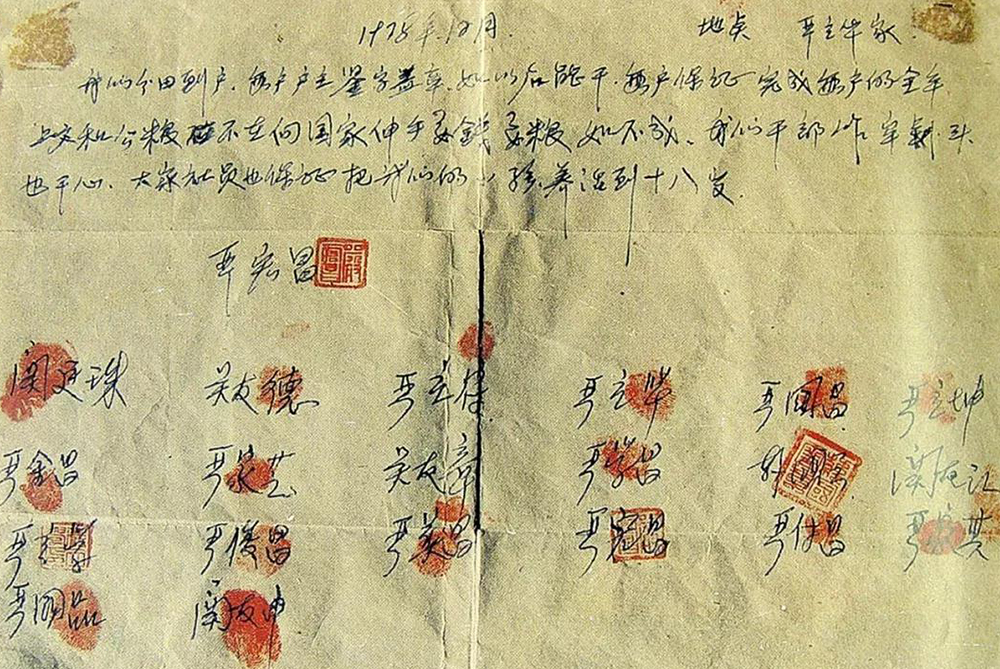 1978年12月. 地点 严立华家
我们分田到户,每户户主签字盖章,如以后能干,每户保证完成每户的全年
上交和公粮 不在向国家伸手要钱要粮 如不成,我们干部作牢 头
也干心,大家社员也保证把我们的小孩养活到十八岁.
严宏昌
関廷珠 关友德 严立符 严立华 严国昌 严立坤
严金昌 严家芝 关友章 严学昌 韩国云 関友江
严立学 严俊昌 严美昌 严宏昌 严付昌 严家其
严国品 関友申